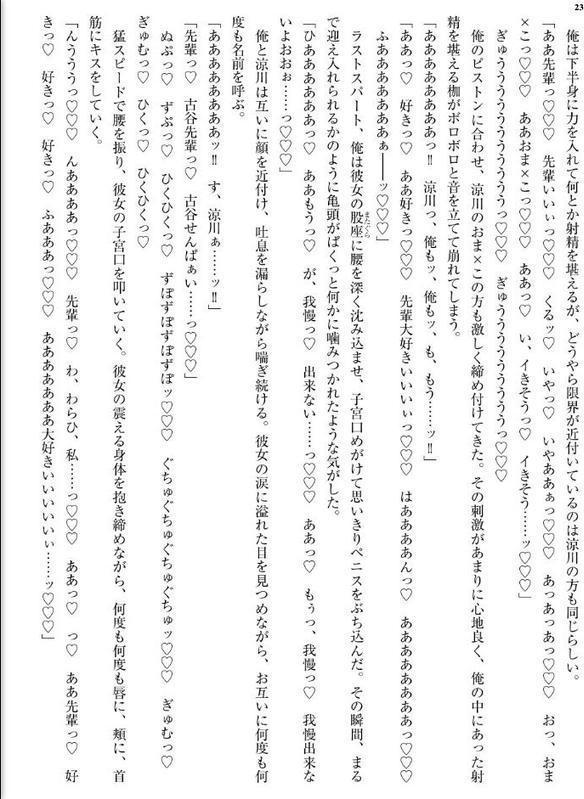 23
俺は下半身に力を入れて何とか射精を堪えるが、どうやら限界が近付いているのは涼川の方も同じらしい。
「ああ先輩っ♡♡♡　先輩いいぃっ♡♡♡　くるッ♡　いやっ♡　いやああぁっ♡♡♡　あっあっあっ♡♡♡　おっ、おま
×こっ♡♡♡　ああおま×こっ♡♡♡　ああっ♡　い、イきそうっ♡　イきそう……ッ♡♡♡」
ぎゅううううううううううっ♡♡♡　ぎゅうううううううううっ♡♡♡
俺のピストンに合わせ、涼川のおま×この方も激しく締め付けてきた。その刺激があまりに心地良く、俺の中にあった射
精を堪える枷がボロボロと音を立てて崩れてしまう。
「ああああああああっ‼　涼川っ、俺もッ、俺もッ、も、もう……ッ‼」
「ああっ♡　好きっ♡　ああ好きっ♡♡♡　先輩大好きいいいぃっ♡♡♡　はああああんっ♡　あああああああああっ♡♡♡
ふああああああああぁ――ッ♡♡♡」
ラストスパート、俺は彼女の股座に腰を深く沈み込ませ、子宮口めがけて思いきりペニスをぶち込んだ。その瞬間、まる
で迎え入れられるかのように亀頭がぱくっと何かに噛みつかれたような気がした。
「ひああああああぁっ♡　ああもうっ♡　が、我慢っ♡　出来ない……っ♡♡♡　ああっ♡　もぅっ、我慢っ♡　我慢出来な
いよおおぉ……っ♡♡♡」
俺と涼川は互いに顔を近付け、吐息を漏らしながら喘ぎ続ける。彼女の涙に溢れた目を見つめながら、お互いに何度も何
度も名前を呼ぶ。
「あああああああぁッ‼　す、涼川ぁ……ッ‼」
「先輩っ♡　古谷先輩っ♡　古谷せんぱぁい……っ♡♡♡」
ぬぷっ♡　ずぷっ♡　ひくひくっ♡　ずぽずぽずぽずぽッ♡♡♡　ぐちゅぐちゅぐちゅぐちゅッ♡♡♡　ぎゅむっ♡
ぎゅむっ♡　ひくっ♡　ひくひくっ♡
猛スピードで腰を振り、彼女の子宮口を叩いていく。彼女の震える身体を抱き締めながら、何度も何度も唇に、頬に、首
筋にキスをしていく。
「んううぅっ♡♡♡　んああああっ♡♡♡　先輩っ♡　わ、わらひ、私……っ♡♡♡　ああっ♡　っ♡　ああ先輩っ♡　好
きっ♡　好きっ♡　好きっ♡　ふあああっ♡♡♡　あああああああああ大好きいいいいいぃ……ッ♡♡♡」
またぐら